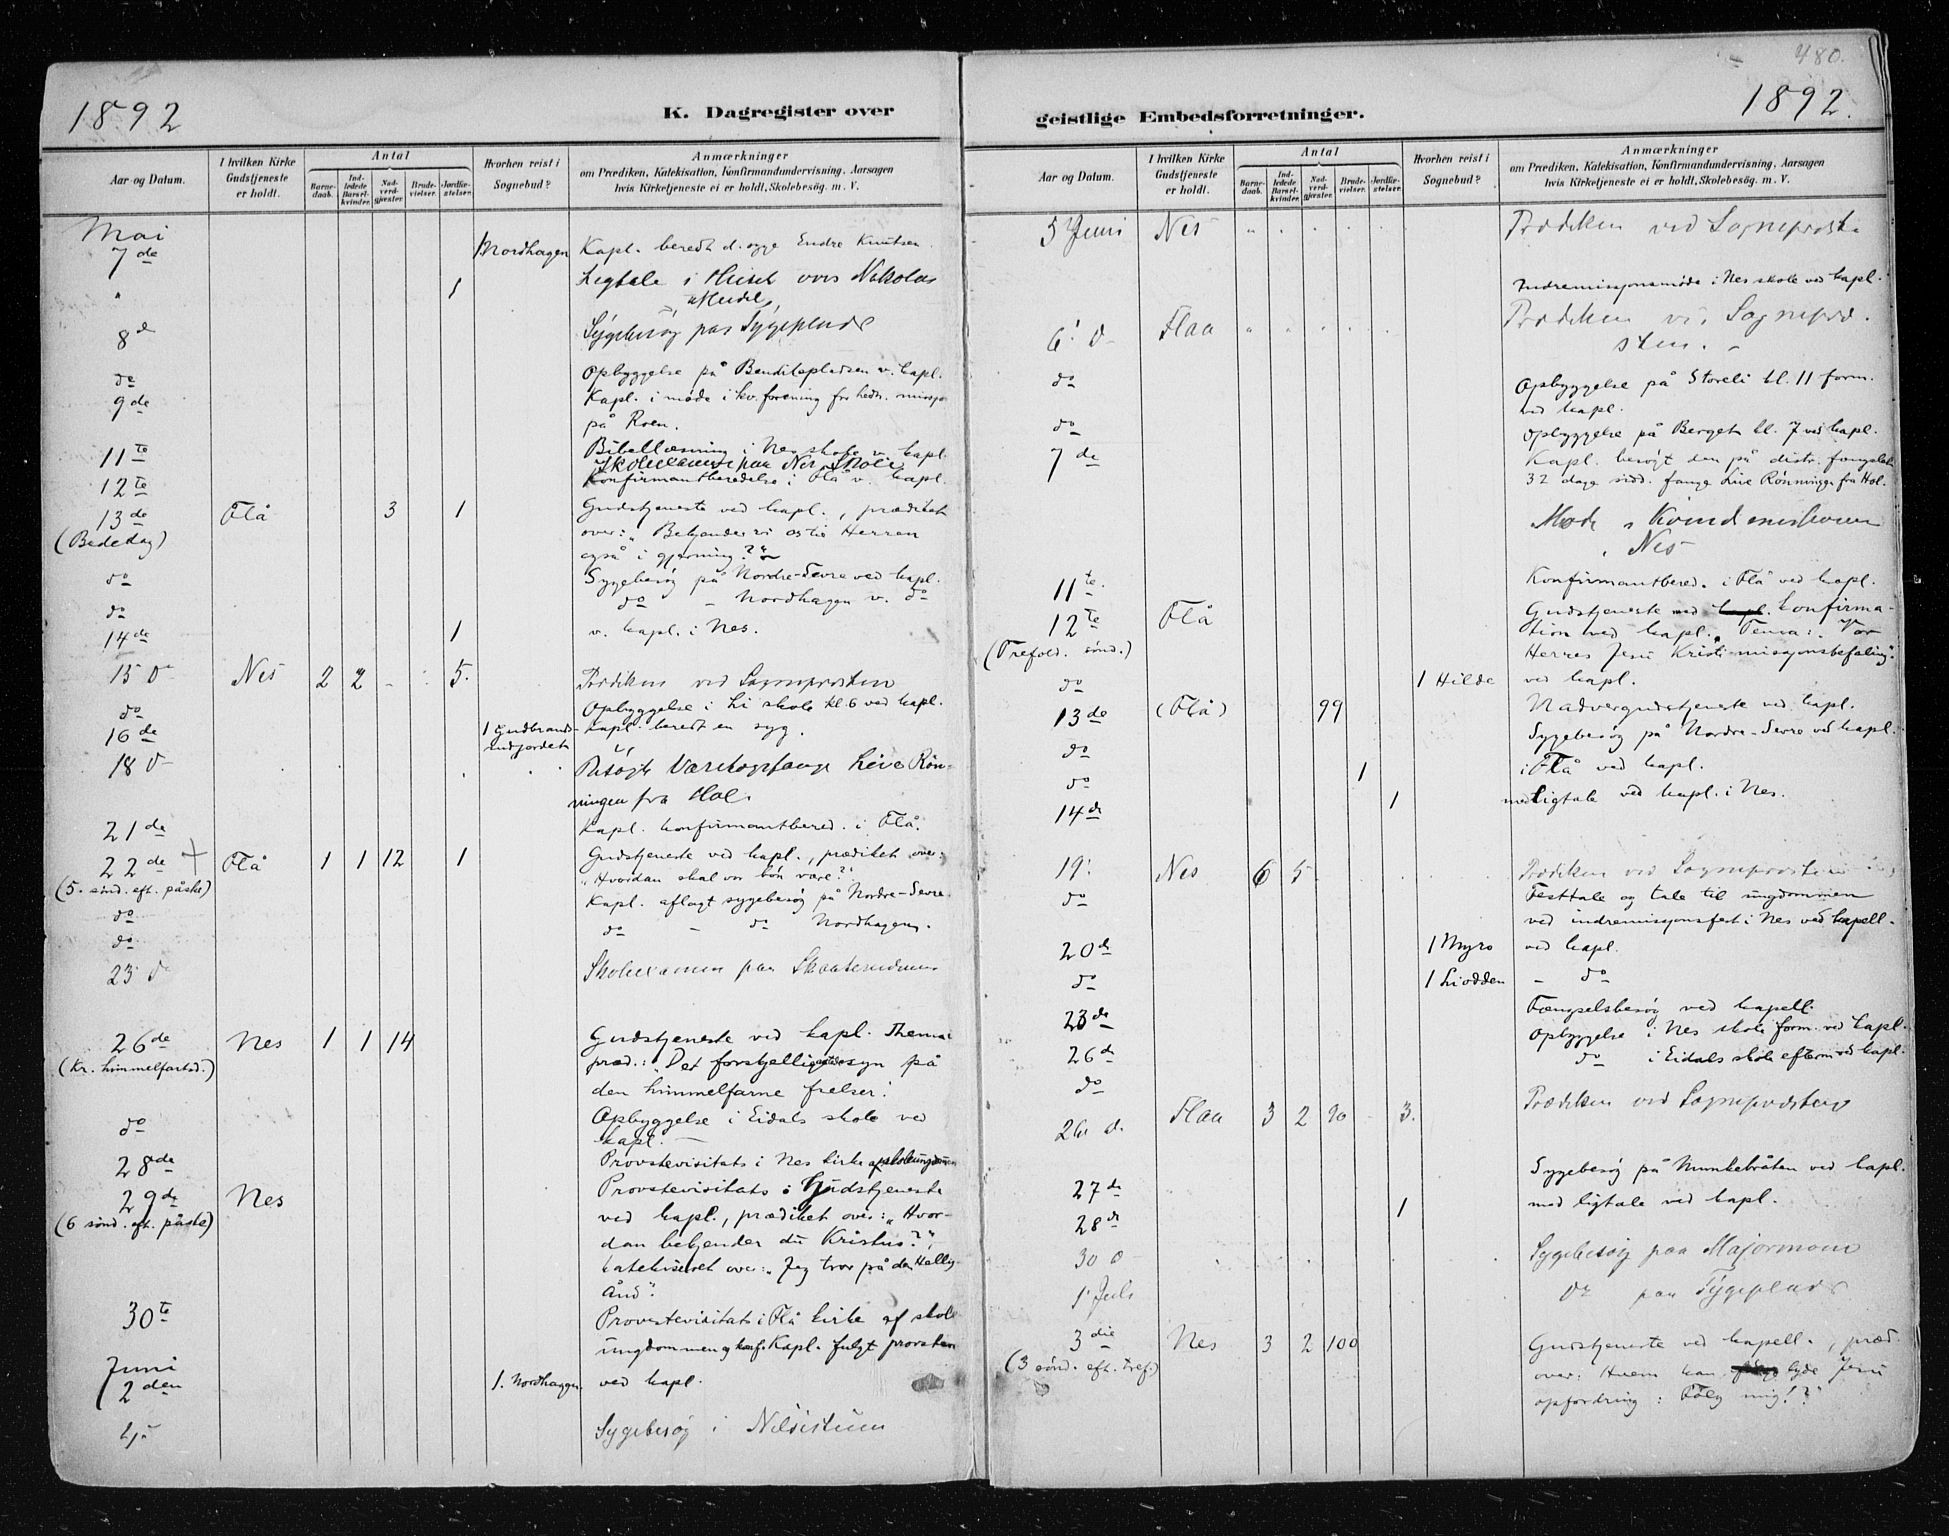 480.
1892
K. Dagregister over
geistlige Embedsforretninger.
1892.
Aar og Datum.
I hvilken Kirke Gudstjeneste er holdt.
Antal
Barnedaab.
Indledede Barselkvinder.
Nadverdgjæster.
Brudevielser.
Jordfæstelser.
Hvorhen reist i Sognebud?
Anmærkninger
om Prædiken, Katekisation, Konfirmandundervisning, Aarsagen
hvis Kirketjeneste ei er holdt, Skolebesøg. m. V.
Mai
7de 1 Nordhagen Kapl. beredt d. syge Endre Knutsen.
" 1 Ligtale i Huset over Nikolas
8d Sygebesøg paa Sygeplads
do Opbyggelse på Benditepladsen v. kapl.
9de Kapl. i møde i kv.forening for hedn. missjo
på Roen.
11te Bibellæsning i Nes skole v. kapl.
Skoleexamen paa Nes Skole
12te Konfirmantberedelse i Flå v. kapl.
13de Flå 3 1 Gudstjeneste ved kapl., prædiket
(Bededag) over: "Bekjender vi os til Herren
også i gjerning?"
do Sygebesøg på Nordre-Sevre ved kapl.
do do - Nordhagen v. do
14de 1 v. kapl. i Nes.
15 d Nes 2 2 - 5. Prædiken ved Sogneprosten
do Opbyggelse i Li skole kl. 6 ved kapl.
16de 1 Gudbrands- kapl. beredt en syg.
18 d Besøgt Varetægtsfange Live Røn-
ningen fra Hol.
21de Kapl. konfirmantbered. i Flå.
22de + Flå 1 1 12 1 Gudstjeneste ved kapl., prædiket over:
(5. sønd. eft. påske) "Hvordan skal vor bøn være?"
do Kapl. aflagt sygebesøg på Nordre-Sevre.
do do - do Nordhagen.
23 d Skoleexamen paa
26de Nes 1 1 14 Gudstjeneste ved kapl. Thema
(Kr. himmelfartsd.) præd.: "Det forskjellige syn på
den himmelfarne frelser."
do Opbyggelse i Eidals skole ved
kapl. —
28de Provstevisitats i Nes kirke af skoleungdommen
29de Nes Provstevisitats i Gudstjeneste
(6 sønd. eft. påske) ved kapl., prædiket over: "Hvor-
dan bekjender du Kristus?",
katekiseret over: "Jeg tror på den Hellig-
Ånd".
30te Provstevisitats i Flå kirke af skole
ungdommen og konf. Kapl. fulgt provsten
Juni
2den 1. Nordhagen ved kapl.
4de Sygebesøg i
Aar og Datum.
I hvilken Kirke Gudstjeneste er holdt.
Antal
Barnedaab.
Indledede Barselkvinder.
Nadverdgjæster.
Brudevielser.
Jordfæstelser.
Hvorhen reist i Sognebud?
Anmærkninger
om Prædiken, Katekisation, Konfirmandundervisning, Aarsagen
hvis Kirketjeneste ei er holdt, Skolebesøg. m. V.
5 Juni Nes " . . . . Prædiken ved Sogneprosten
Indremissjonsmøde i Nes skole ved kapl.
6' d Flaa " " . . . Prædiken ved Sognepro-
sten. -
do Opbyggelse på Storeli kl. 11 form.
ved kapl.
do Opbyggelse på Berget kl. 7 ved kapl.
7de Kapl. besøgt den på distr. fængslet
32 dage sidd. fange Live Rønningen fra Hol.
Møde i Kvindemissionen
i Nes
11te. Konfirmantbered. i Flå ved kapl.
12te Flå Gudstjeneste med kapl. konfirma-
(Trefold. sønd.) tion ved kapl. Tema: "Vor
Herres Jesu Kristi missjonsbefaling".
do 1 Hilde ved kapl.
13de (Flå) 99 Nadvergudstjeneste ved kapl.
do Sygebesøg på Nordre-Sevre ved kapl.
do 1 i Flå ved kapl.
14de 1 med ligtale ved kapl. i Nes.
19' Nes 6 5 Prædiken ved Sogneprosten
do Festtale og tale til ungdommen
ved indremissjonsfest i Nes ved kapell.
20de 1 Myro ved kapl.
do 1 Liodden - do
23de Fængselsbesøg ved kapell.
26d Opbyggelse i Nes skole form. ved kapl.
do do i Eidals skole efterm. ved kapl.
26 d. Flaa 3 2 90 - 3. Prædiken ved Sogneprosten
27de Sygebesøg på Munkebråten ved kapl.
28de 1 med ligtale ved kapl.
30 d Sygebesøg paa Majormoen
1' Juli do paa Sygeplads
3die Nes 3 2 100 Gudstjeneste ved kapell., præd.
(3 sønd. eft. tref.) over: Hvem kan lyde Jesu
opfordring: Følg mig!?"